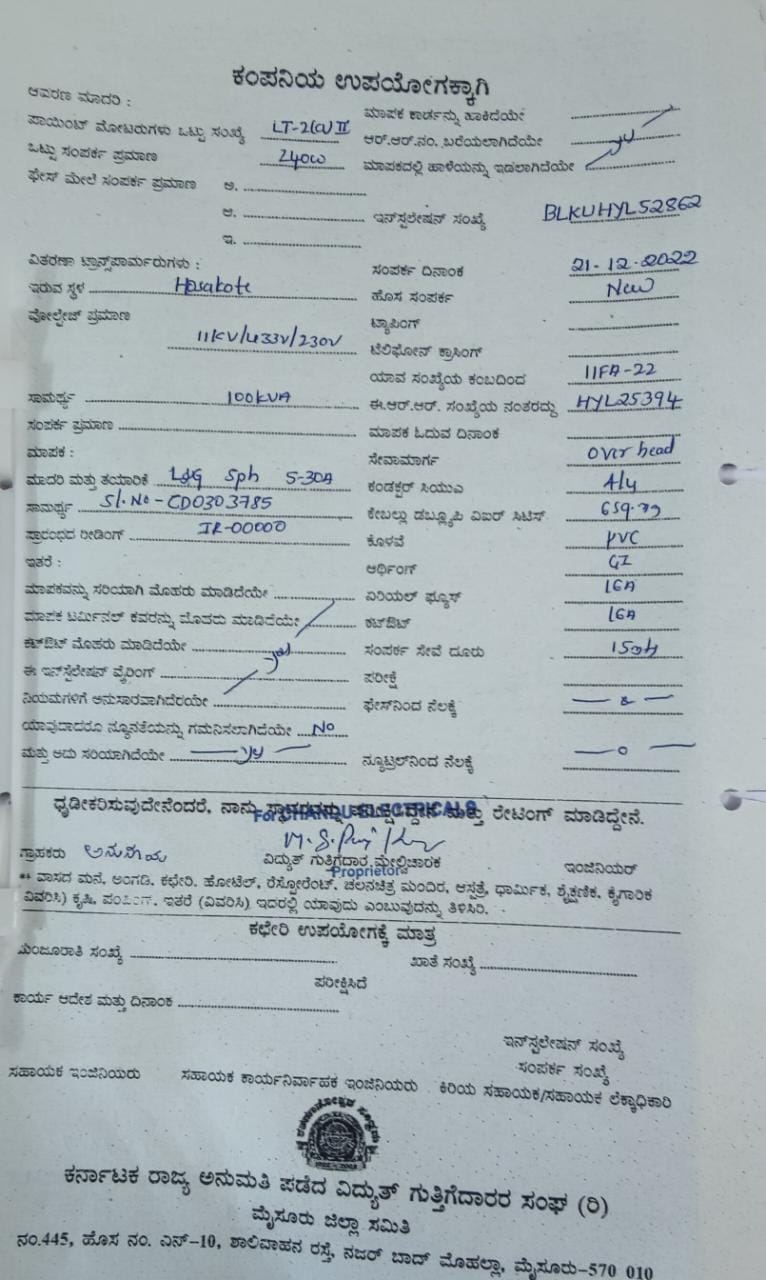 ಕಂಪನಿಯ ಉಪಯೋಗಕ್ಕಾಗಿ
ಆವರಣ ಮಾದರಿ :
ಮಾಪಕ ಕಾರ್ಡನ್ನು ಹಾಕಿದೆಯೇ
ಪಾಯಿಂಟ್ ಮೋಟರುಗಳು ಒಟ್ಟು ಸಂಖ್ಯೆ LT-2(a) II
ಆರ್.ಆರ್.ನಂ. ಬರೆಯಲಾಗಿದೆಯೇ
ಒಟ್ಟು ಸಂಪರ್ಕ ಪ್ರಮಾಣ 240w
ಮಾಪಕದಲ್ಲಿ ಹಾಳೆಯನ್ನು ಇಡಲಾಗಿದೆಯೇ
ಫೇಸ್ ಮೇಲೆ ಸಂಪರ್ಕ ಪ್ರಮಾಣ ಅ.
ಆ. ಇನ್‌ಸ್ಟಲೇಷನ್ ಸಂಖ್ಯೆ BLKUHYL52862
ಇ.
ವಿತರಣಾ ಟ್ರಾನ್ಸ್‌ಪಾರ್ಮರುಗಳು :
ಸಂಪರ್ಕ ದಿನಾಂಕ 21-12-2022
ಇರುವ ಸ್ಥಳ Hosakote
ಹೊಸ ಸಂಪರ್ಕ New
ವೋಲ್ಟೇಜ್ ಪ್ರಮಾಣ 11KV/433V/230V
ಟ್ಯಾಪಿಂಗ್
ಟೆಲಿಫೋನ್ ಕ್ರಾಸಿಂಗ್
ಯಾವ ಸಂಖ್ಯೆಯ ಕಂಬದಿಂದ 11FA-22
ಸಾಮರ್ಥ್ಯ 100KVA
ಈ.ಆರ್.ಆರ್. ಸಂಖ್ಯೆಯ ನಂತರದ್ದು HYL25394
ಸಂಪರ್ಕ ಪ್ರಮಾಣ
ಮಾಪಕ ಓದುವ ದಿನಾಂಕ
ಮಾಪಕ :
ಸೇವಾಮಾರ್ಗ Over head
ಮಾದರಿ ಮತ್ತು ತಯಾರಿಕೆ L&G Sph 5-30A
ಕಂಡಕ್ಟರ್ ಸಿಯುಎ Aly
ಸಾಮರ್ಥ್ಯ Sl.No-CD0303785
ಕೇಬಲ್ಲು ಡಬ್ಲ್ಯೂಪಿ ವಿಐರ್ ಸಿಟಿಸ್
ಪ್ರಾರಂಭದ ರೀಡಿಂಗ್ IR-00000
ಕೊಳವೆ PVC
ಇತರೆ :
ಆರ್ಥಿಂಗ್ GI
ಮಾಪಕವನ್ನು ಸರಿಯಾಗಿ ಮೊಹರು ಮಾಡಿದೆಯೇ
ಏರಿಯಲ್ ಫ್ಯೂಸ್ 16A
ಮಾಪಕ ಟರ್ಮಿನಲ್ ಕವರನ್ನು ಮೊಹರು ಮಾಡಿದೆಯೇ
ಕಟ್‌ಔಟ್ 16A
ಕಟ್‌ಔಟ್ ಮೊಹರು ಮಾಡಿದೆಯೇ
ಸಂಪರ್ಕ ಸೇವೆ ದೂರು
ಈ ಇನ್‌ಸ್ಟಲೇಷನ್ ವೈರಿಂಗ್
ಪರೀಕ್ಷೆ
ನಿಯಮಗಳಿಗೆ ಅನುಸಾರವಾಗಿದೆರಯೇ
ಫೇಸ್‌ನಿಂದ ನೆಲಕ್ಕೆ
ಯಾವುದಾದರೂ ನ್ಯೂನತೆಯನ್ನು ಗಮನಿಸಲಾಗಿದೆಯೇ No
ಮತ್ತು ಅದು ಸರಿಯಾಗಿದೆಯೇ
ನ್ಯೂಟ್ರಲ್‌ನಿಂದ ನೆಲಕ್ಕೆ
ಧೃಡೀಕರಿಸುವುದೇನೆಂದರೆ, ನಾನು ಮತ್ತು ರೇಟಿಂಗ್ ಮಾಡಿದ್ದೇನೆ.
For ELECTRICALS
ಗ್ರಾಹಕರು
ವಿದ್ಯುತ್ ಗುತ್ತಿಗೆದಾರ ಮೇಲ್ವಿಚಾರಕ
ಇಂಜಿನಿಯರ್
Proprietor
** ವಾಸದ ಮನೆ, ಅಂಗಡಿ, ಕಛೇರಿ, ಹೋಟೆಲ್, ರೆಸ್ಟೋರೆಂಟ್, ಚಲನಚಿತ್ರ ಮಂದಿರ, ಆಸ್ಪತ್ರೆ, ಧಾರ್ಮಿಕ, ಶೈಕ್ಷಣಿಕ, ಕೈಗಾರಿಕ
ವಿವರಿಸಿ) ಕೃಷಿ, ಪಂಪಿಂಗ್, ಇತರೆ (ವಿವರಿಸಿ) ಇದರಲ್ಲಿ ಯಾವುದು ಎಂಬುವುದನ್ನು ತಿಳಿಸಿರಿ.
ಕಛೇರಿ ಉಪಯೋಗಕ್ಕೆ ಮಾತ್ರ
ಮಂಜೂರಾತಿ ಸಂಖ್ಯೆ
ಖಾತೆ ಸಂಖ್ಯೆ
ಪರೀಕ್ಷಿಸಿದೆ
ಕಾರ್ಯ ಆದೇಶ ಮತ್ತು ದಿನಾಂಕ
ಇನ್‌ಸ್ಟಲೇಷನ್ ಸಂಖ್ಯೆ
ಸಂಪರ್ಕ ಸಂಖ್ಯೆ
ಸಹಾಯಕ ಇಂಜಿನಿಯರು ಸಹಾಯಕ ಕಾರ್ಯನಿರ್ವಾಹಕ ಇಂಜಿನಿಯರು ಕಿರಿಯ ಸಹಾಯಕ/ಸಹಾಯಕ ಲೆಕ್ಕಾಧಿಕಾರಿ
ಕರ್ನಾಟಕ ರಾಜ್ಯ ಅನುಮತಿ ಪಡೆದ ವಿದ್ಯುತ್ ಗುತ್ತಿಗೆದಾರರ ಸಂಘ (ರಿ)
ಮೈಸೂರು ಜಿಲ್ಲಾ ಸಮಿತಿ
ನಂ.445, ಹೊಸ ನಂ. ಎನ್-10, ಶಾಲಿವಾಹನ ರಸ್ತೆ, ನಜರ್ ಬಾದ್ ಮೊಹಲ್ಲಾ, ಮೈಸೂರು-570 010